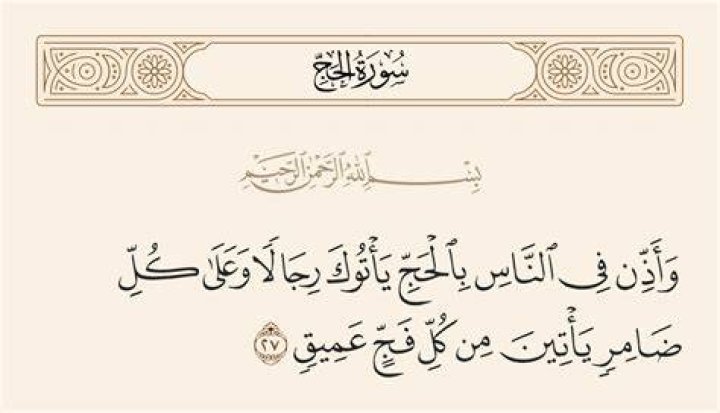 سُورَةُ الحَجِّ
بِسْمِ ٱللَّهِ ٱلرَّحْمَٰنِ ٱلرَّحِيمِ
وَأَذِّن فِي ٱلنَّاسِ بِٱلْحَجِّ يَأْتُوكَ رِجَالًا وَعَلَىٰ كُلِّ
ضَامِرٍ يَأْتِينَ مِن كُلِّ فَجٍّ عَمِيقٍ ٢٧